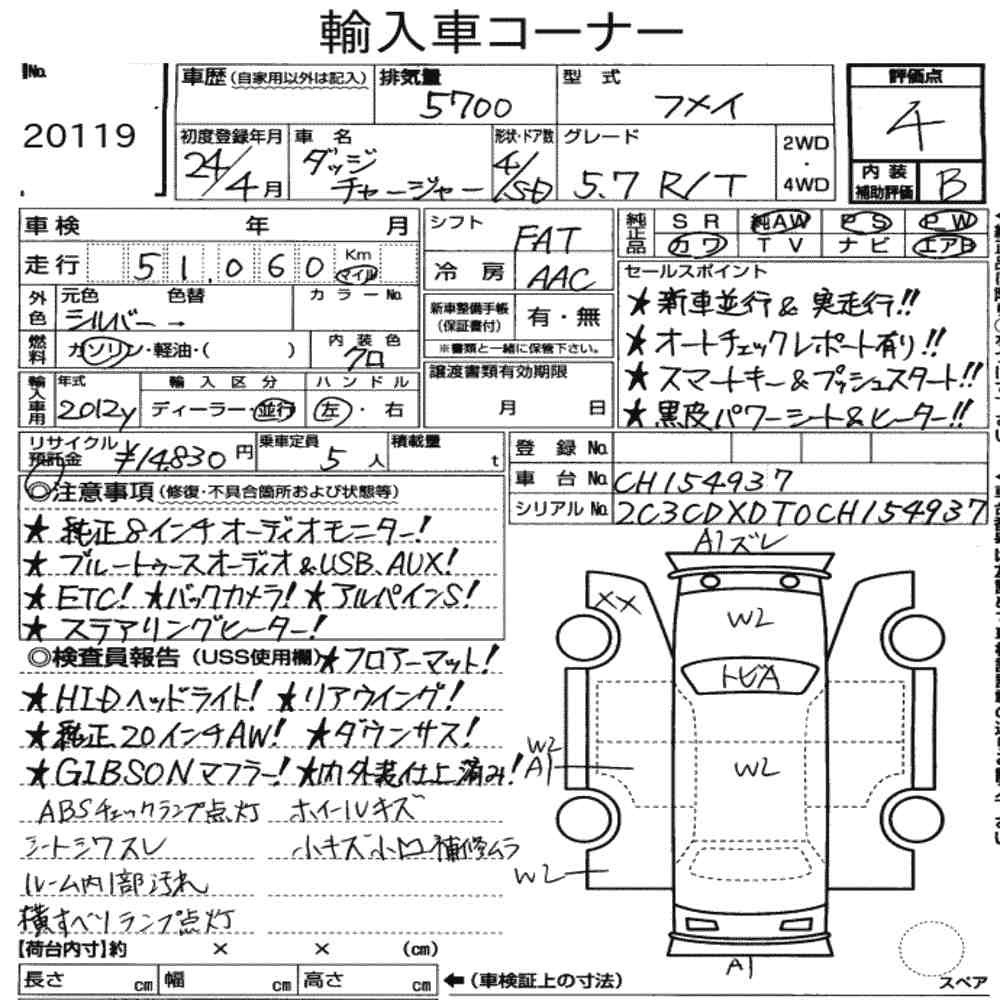 輸入車コーナー
No.
20119
車歴 (自家用以外は記入)
排気量
5700
型式
フメイ
評価点
4
初度登録年月
24/4月
車名
ダッジ
チャージャー
形状・ドア数
4/SD
グレード
5.7 R/T
2WD
・
4WD
内装
補助評価
B
車検 年 月
走行 51,060 Km
マイル
外色
元色 色替
シルバー →
カラーNo.
燃料
ガソリン・軽油・( )
内装色
クロ
輸入車用
年式
2012y
輸入区分
ディーラー・並行
ハンドル
左・右
シフト
FAT
冷房
AAC
新車整備手帳
(保証書付)
有・無
※書類と一緒に保管下さい。
譲渡書類有効期限
月 日
純正品
SR 純AW PS PW
カワ TV ナビ エアB
セールスポイント
★新車並行&実走行!!
★オートチェックレポート有り!!
★スマートキー&プッシュスタート!!
★黒皮パワーシート&ヒーター!!
リサイクル
預託金
¥14.830円
乗車定員
5人
積載量
t
登録No.
車台No. CH154937
シリアルNo. 2C3CDXDT0CH154937
◎注意事項 (修復・不具合箇所および状態等)
★純正8インチオーディオモニター!
★ブルートゥースオーディオ&USB、AUX!
★ETC! ★バックカメラ! ★アルパインS!
★ステアリングヒーター!
◎検査員報告 (USS使用欄) ★フロアーマット!
★HIDヘッドライト! ★リアウイング!
★純正20インチAW! ★ダウンサス!
★GIBSONマフラー! ★内外装仕上済み!
ABSチェックランプ点灯 ホイールキズ
シートシワスレ 小キズ小凹補修ムラ
ルーム内1部汚れ
横すべりランプ点灯
A1ズレ
XX
W2
トビA
W2
A1
W2
W2
A1
【荷台内寸】約 × × (cm)
長さ cm 幅 cm 高さ cm
←(車検証上の寸法)
スペア